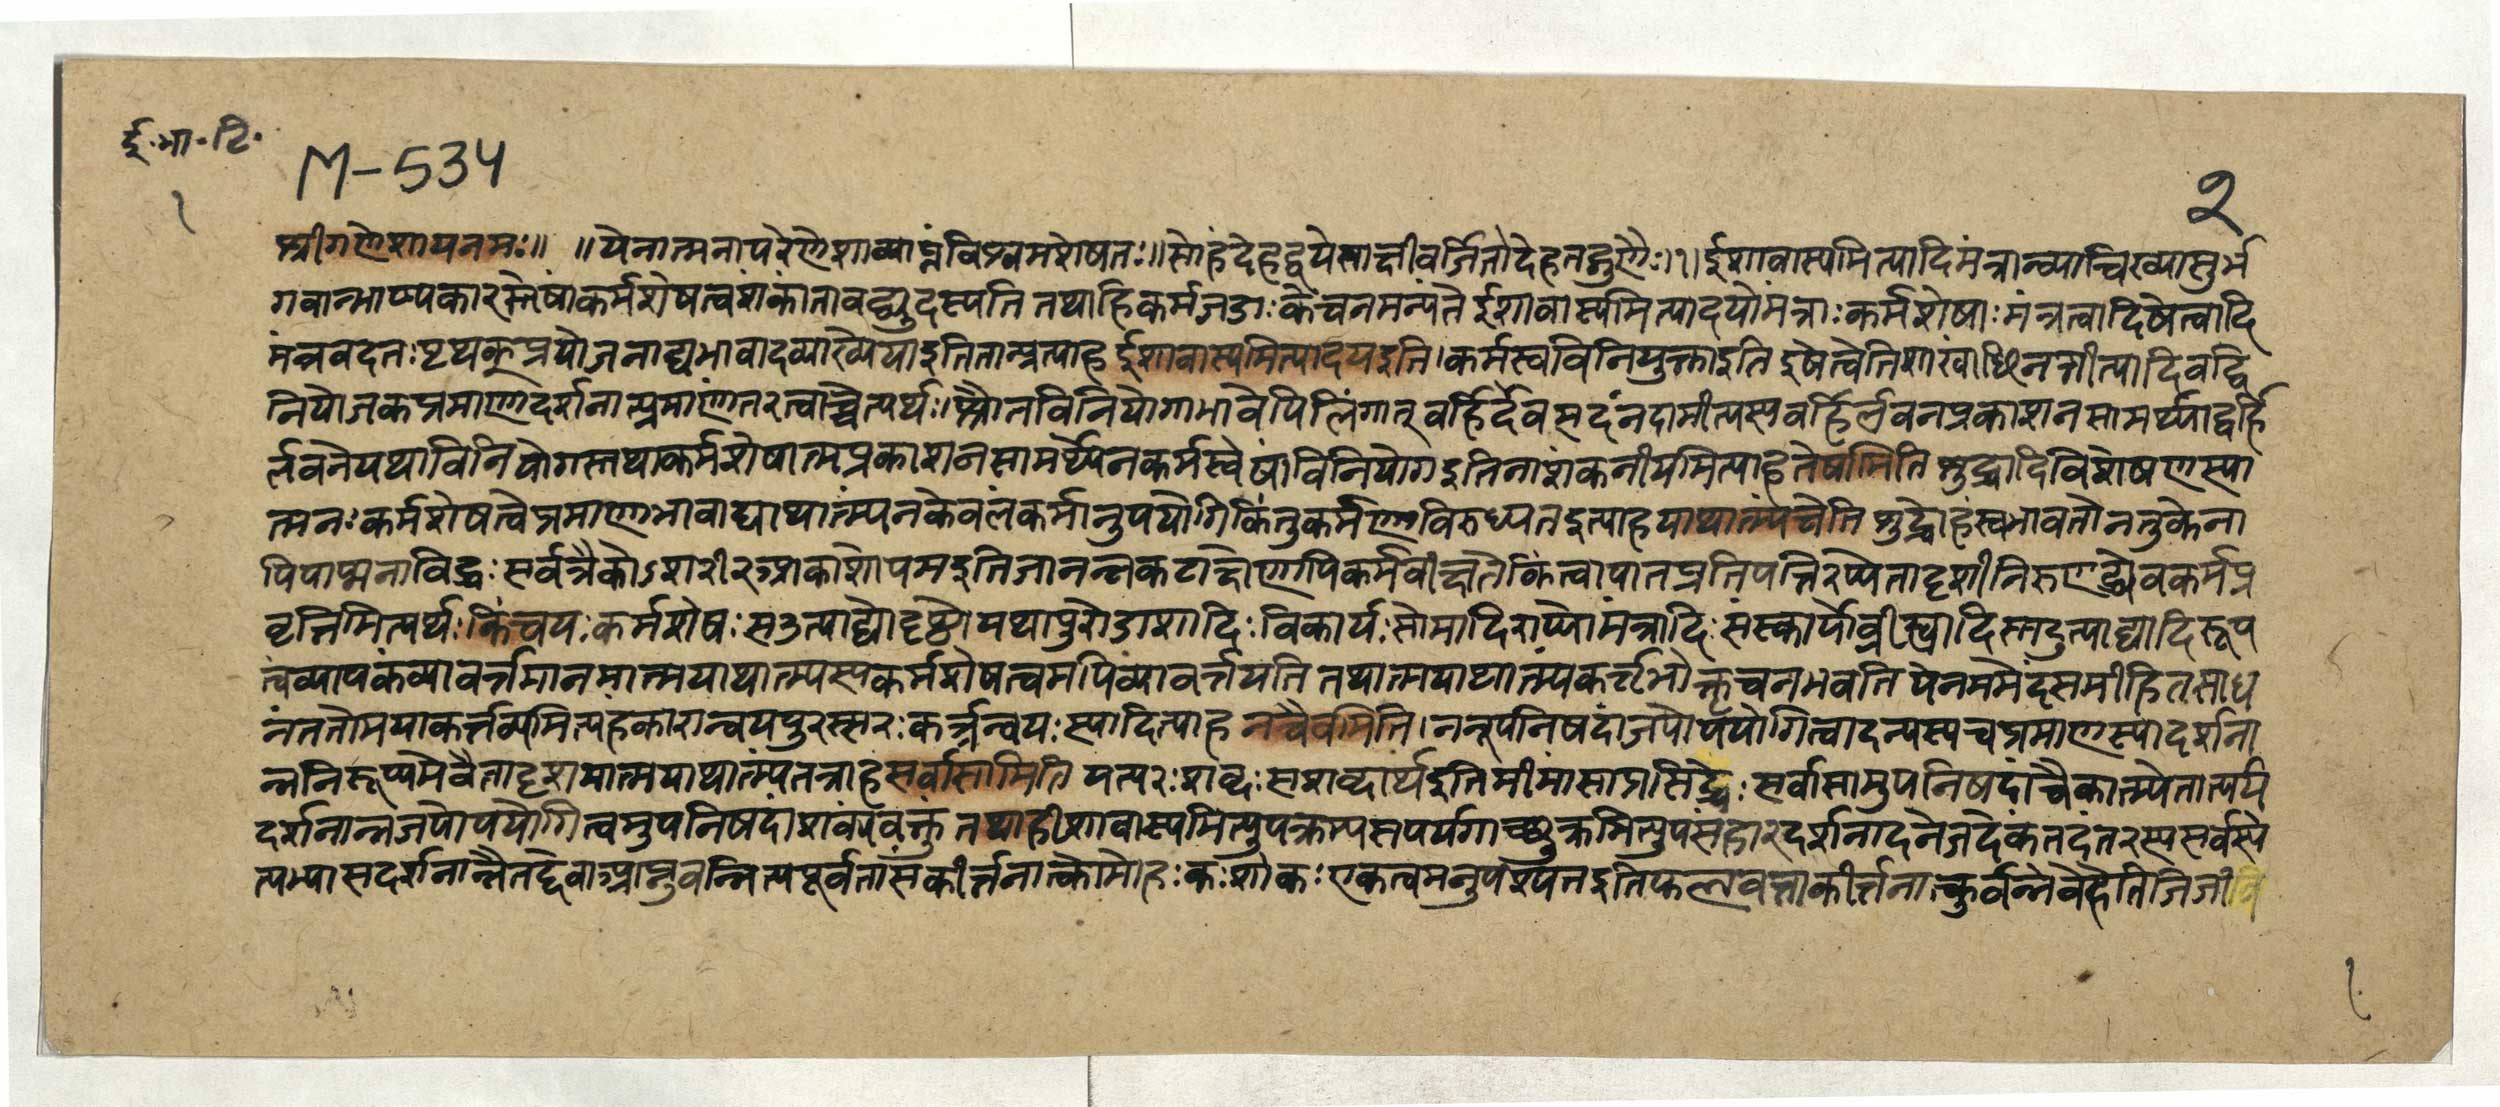 ई.भा.टि.
M-534
१
२
श्रीगणेशायनमः॥ ॥येनात्मनापरेणेशाव्याप्तंविश्वमशेषतः॥सोहंदेहद्वयेसाक्षीवर्जितोदेहतद्गुणैः॥१॥ईशावास्यमित्यादिमंत्रान्व्याचिख्यासुर्भ
गवान्भाष्यकारस्तेषांकर्मशेषत्वशंकांतावद्व्युदस्यति तथाहिकर्मजडाःकेचनमन्यंते ईशावास्यमित्यादयोमंत्राःकर्मशेषाःमंत्रत्वादिषेत्वादि
मंत्रवदतःपृथक्प्रयोजनाद्यभावादव्याख्येयाइतितान्प्रत्याह ईशावास्यमित्यादयइति।कर्मस्वविनियुक्ताइति इषेत्वेतिशाखांछिनत्तीत्यादिवद्वि
नियोजकप्रमाणादर्शनात्प्रमाणांतरत्वाच्चेत्यर्थः।श्रौतविनियोगाभावेपिलिंगात् वर्हिर्देवसदनंदामीत्यस्यवर्हिर्लवनप्रकाशनसामर्थ्याद्वर्हि
र्लवनेयथाविनियोगस्तथाकर्मशेषात्मप्रकाशनसामर्थ्येनकर्मस्वेषांविनियोगइतिनाशंकनीयमित्याहतेषामिति शुद्धादिविशेषणस्या
त्मनःकर्मशेषत्वेप्रमाणाभावाद्याथात्म्यंनकेवलंकर्मानुपयोगिकिंतुकर्मणाविरुध्यतइत्याहयाथात्म्यंचेति शुद्धोहंस्वभावतोनतुकेना
पिपाप्मनाविद्धःसर्वत्रैकोऽशरीरआकाशोपमइतिजानन्नकटाक्षेणापिकर्मवीक्षतेकिंत्वापातप्रतिपत्तिरप्येतादृशीनिरुणद्ध्येवकर्मप्र
वृत्तिमित्यर्थःकिंचयःकर्मशेषःसउत्पाद्योदृष्टोयथापुरोडाशादिःविकार्यःसोमादिराप्योमंत्रादिःसंस्कार्योव्रीह्यादिस्तदुत्पाद्यादिरूप
त्वंव्यापकंव्यावर्त्तमानमात्मयाथात्म्यस्यकर्मशेषत्वमपिव्यावर्त्तयति तथात्मयाथात्म्यंकर्त्तृभोक्तृचनभवति येनममेदंसमीहितसाध
नंततोमयाकर्त्तव्यमित्यहंकारान्वयपुरस्सरःकर्त्रन्वयःस्यादित्याह नचैवमिति।ननूपनिषदांजपोपयोगित्वादन्यस्यचप्रमाणस्यादर्शना
न्ननिरूप्यमेवैतादृशमात्मयाथात्म्यंतत्राहसर्वासामिति यत्परःशब्दःसशब्दार्थइतिमीमांसाप्रसिद्धेःसर्वासामुपनिषदांचैकात्म्येतात्पर्य
दर्शनान्नजपोपयोगित्वमुपनिषदांशंक्यंवक्तुं तथाहीशावास्यमित्युपक्रम्यसपर्यगाच्छुक्रमित्युपसंहारदर्शनादनेजदेकंतदंतरस्यसर्वस्ये
त्यभ्यासदर्शनान्नैनद्देवाआप्नुवन्नित्यपूर्वतासंकीर्त्तनात्कोमोहःकःशोकःएकत्वमनुपश्यतइतिफलवत्ताकीर्त्तनात्कुर्वन्नेवेहेतिजिजीवि
१